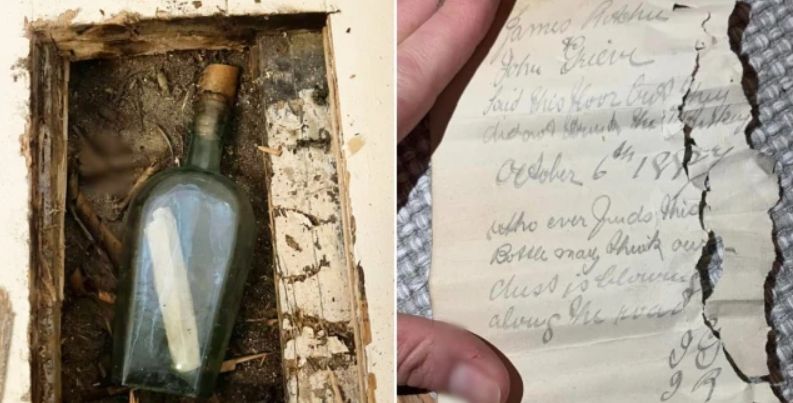 James Ritchie
John Grieve
Laid this floor but they
did not drink the whiskey
October 6th 1887
who ever finds this
Bottle may think our
dust is blowing
along the road
JG
JR